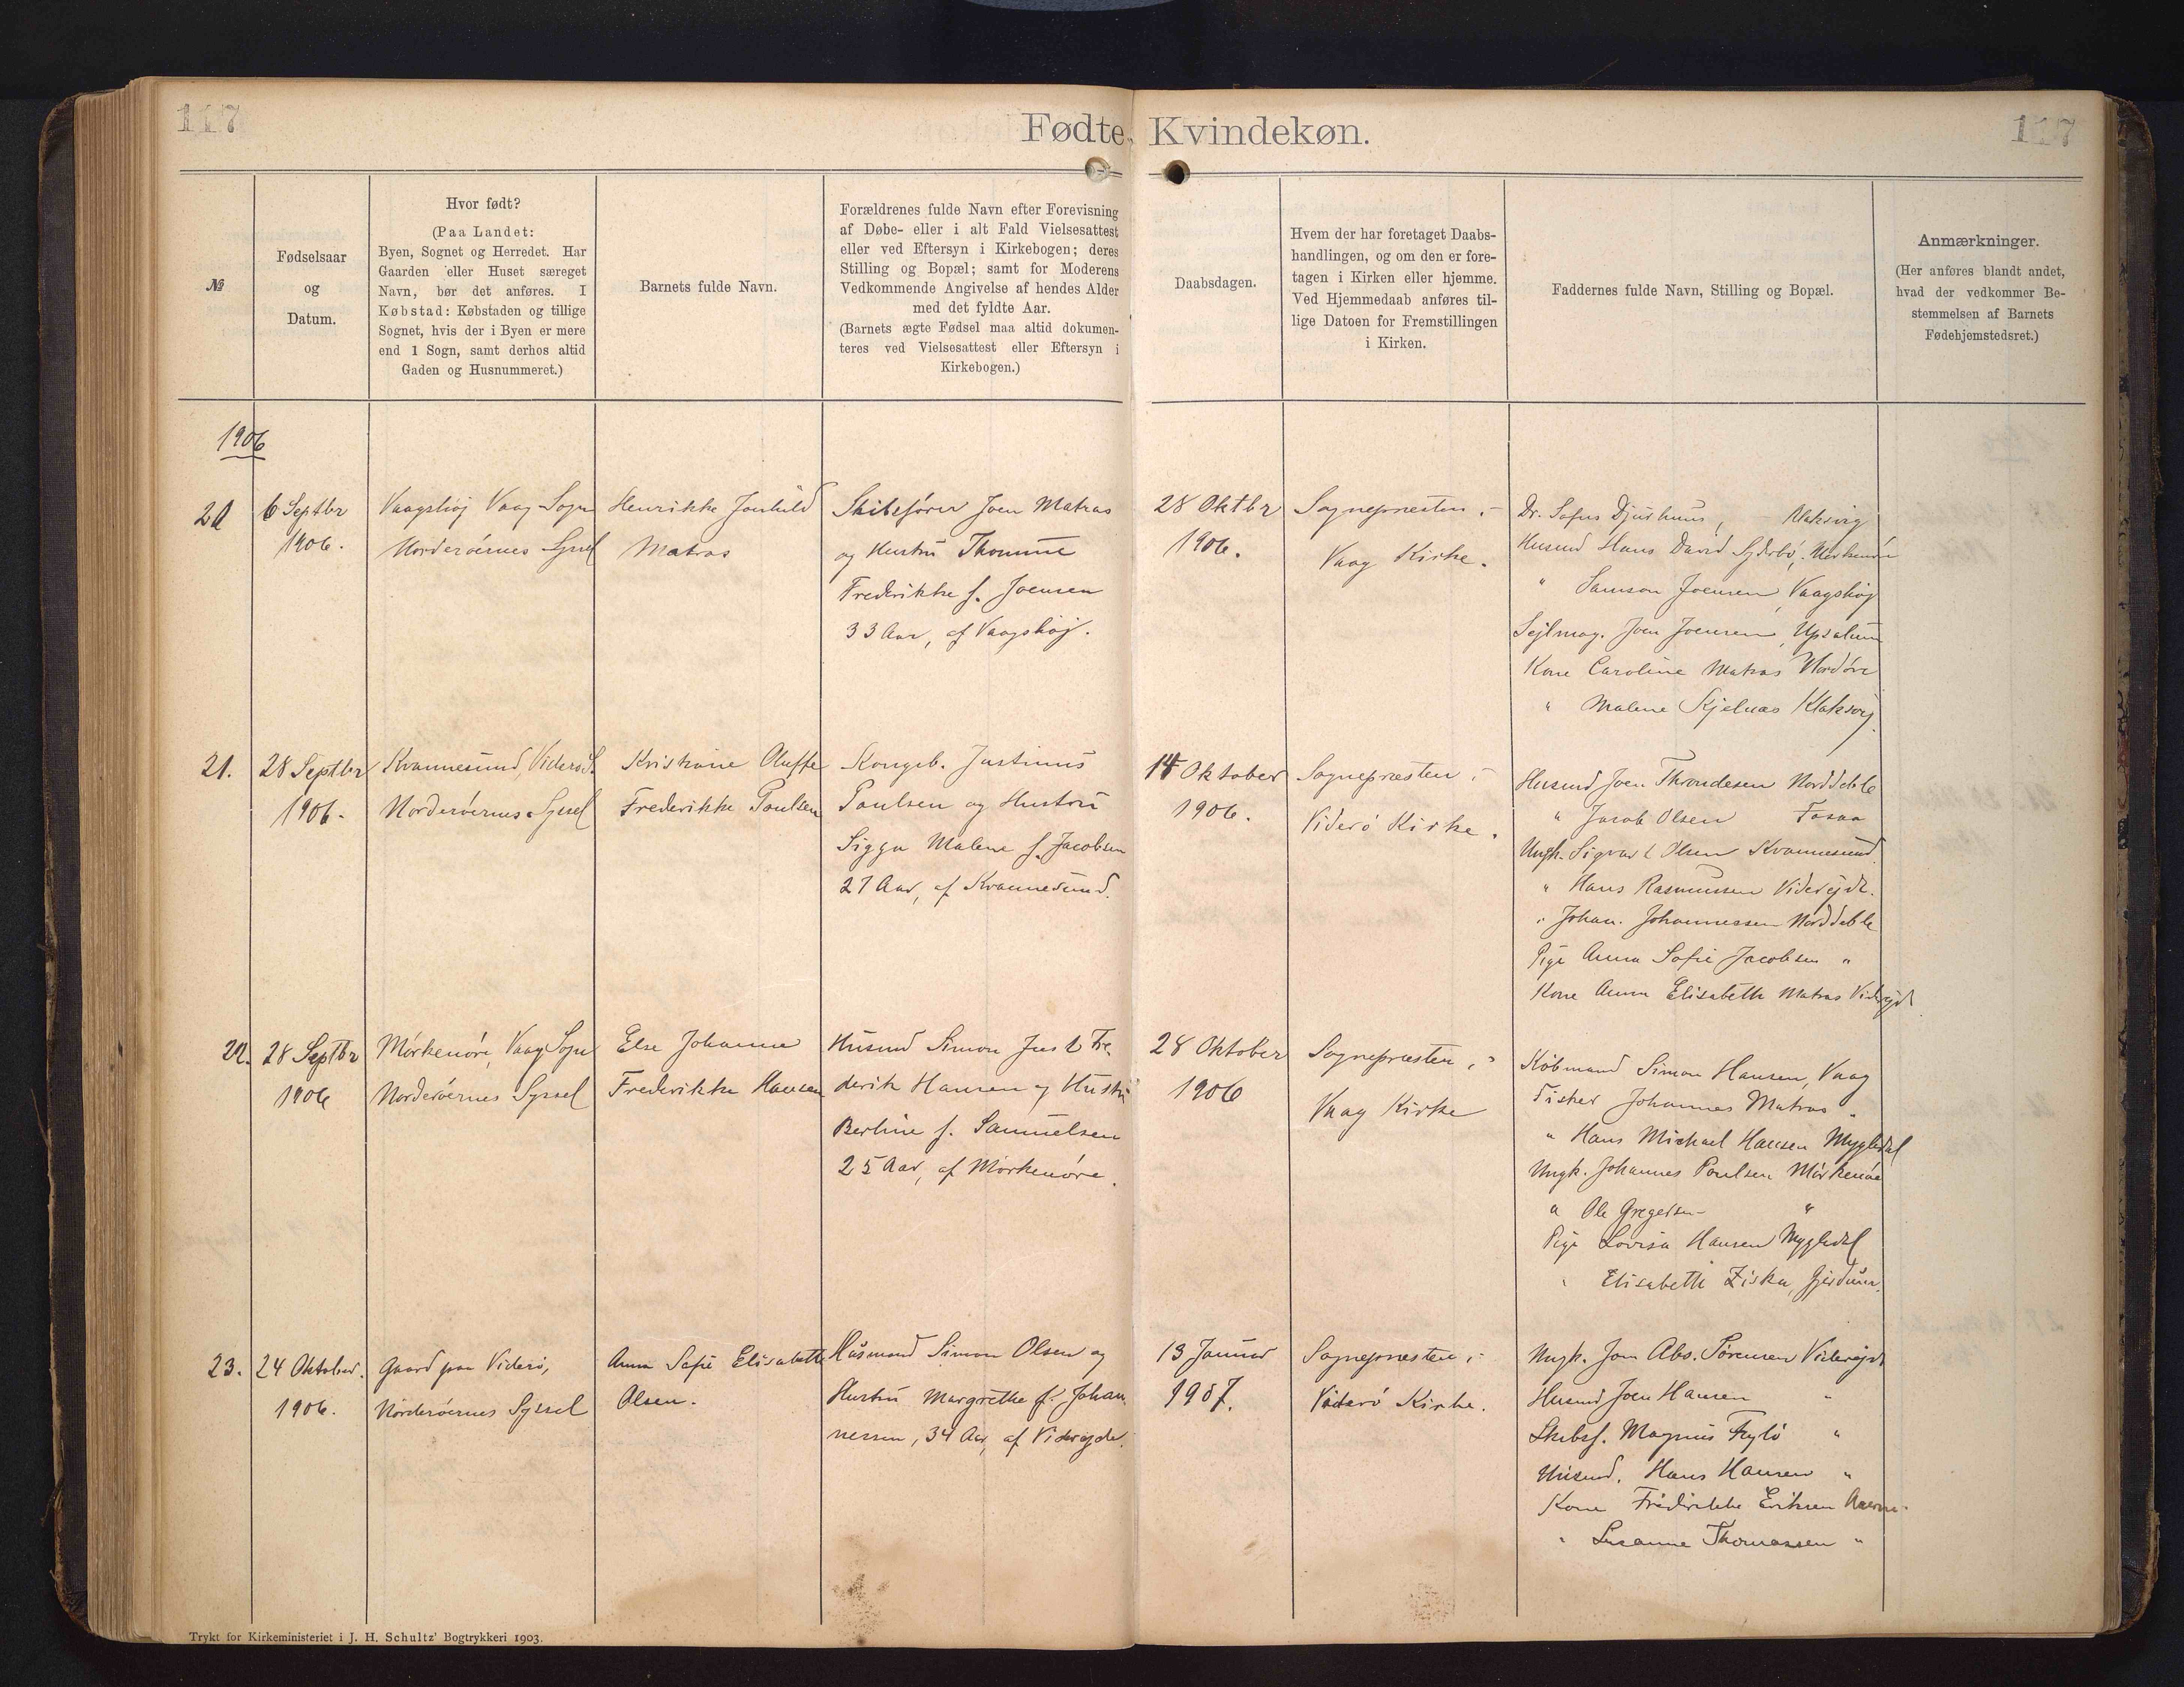 117
Fødte, Kvindekøn.
117
№
Fødselsaar
og
Datum.
Hvor født?
(Paa Landet:
Byen, Sognet og Herredet. Har
Gaarden eller Huset særeget
Navn, bør det anføres. I
Købstad: Købstaden og tillige
Sognet, hvis der i Byen er mere
end 1 Sogn, samt derhos altid
Gaden og Husnummeret.)
Barnets fulde Navn.
Forældrenes fulde Navn efter Forevisning
af Døbe- eller i alt Fald Vielsesattest
eller ved Eftersyn i Kirkebogen; deres
Stilling og Bopæl; samt for Moderens
Vedkommende Angivelse af hendes Alder
med det fyldte Aar.
(Barnets ægte Fødsel maa altid dokumen-
teres ved Vielsesattest eller Eftersyn i
Kirkebogen.)
Daabsdagen.
Hvem der har foretaget Daabs-
handlingen, og om den er fore-
tagen i Kirken eller hjemme.
Ved Hjemmedaab anføres til-
lige Datoen for Fremstillingen
i Kirken.
Faddernes fulde Navn, Stilling og Bopæl.
Anmærkninger.
(Her anføres blandt andet,
hvad der vedkommer Be-
stemmelsen af Barnets
Fødehjemstedsret.)
1906
20
6 Septbr
1906.
Vaagshøj Vaag Sogn
Norderøernes Syssel
Henrikke Jonhild
Matras
Skibsfører Joen Matras
og Hustru Thomine
Frederikke f. Joensen
33 Aar, af Vaagshøj.
28 Oktbr
1906.
Sognepræsten i
Vaag Kirke.
Dr. Sofus Djurhuus, Klaksvig
Husmd Hans David Syderbø,
" Samson Joensen, Vaagshøj
Sejlmag. Joen Joensen, Upsalum
Kone Caroline Matras Nordøre
" Malene Kjelnæs Klaksvig
21.
28 Septbr
1906.
Kvannesund, Viderø S.
Norderøernes Syssel
Kristiane Oluffa
Frederikke Poulsen
Kongsb. Justinus
Poulsen og Hustru
Sigga Malene f. Jacobsen
27 Aar, af Kvannesund.
14 Oktober
1906.
Sognepræsten i
Viderø Kirke.
Husmd Joen Throndesen Norddeble
" Jacob Olsen Fosaa
Ungk. Sigvard Olsen Kvannesund
" Hans Rasmussen Viderejde.
" Johan. Johannessen Norddeble
Pige Anna Sofie Jacobsen "
Kone Anna Elisabeth Matras Viderejde
22.
28 Septbr
1906
Mørkenøre, Vaag Sogn
Norderøernes Syssel
Else Johanne
Frederikke Hansen
Husmd Simon Just Fre-
derik Hansen og Hustru
Berline f. Samuelsen
25 Aar, af Mørkenøre.
28 Oktober
1906
Sognepræsten i
Vaag Kirke
Købmand Simon Hansen, Vaag
Fisker Johannes Matras "
" Hans Michael Hansen Mygledal
Ungk. Johannes Poulsen Mørkenøre
" Ole Gregersen "
Pige Lovisa Hansen Mygledal
" Elisabeth Ziska,
23.
24 Oktober.
1906.
Gaard paa Viderø,
Norderøernes Syssel
Anna Sofie Elisabeth
Olsen.
Husmand Simon Olsen og
Hustru Margrethe f. Johan-
nessen, 34 Aar, af Viderejde.
13 Januar
1907.
Sognepræsten i
Viderø Kirke.
Ungk. Jon Abs. Sørensen Viderejde
Husmd Joen Hansen "
Skibsf. Magnus Fuglø "
Husmd. Hans Hansen "
Kone Fredrikke Eriksen
" Susanne Thomassen "
Trykt for Kirkeministeriet i J. H. Schultz' Bogtrykkeri 1903.